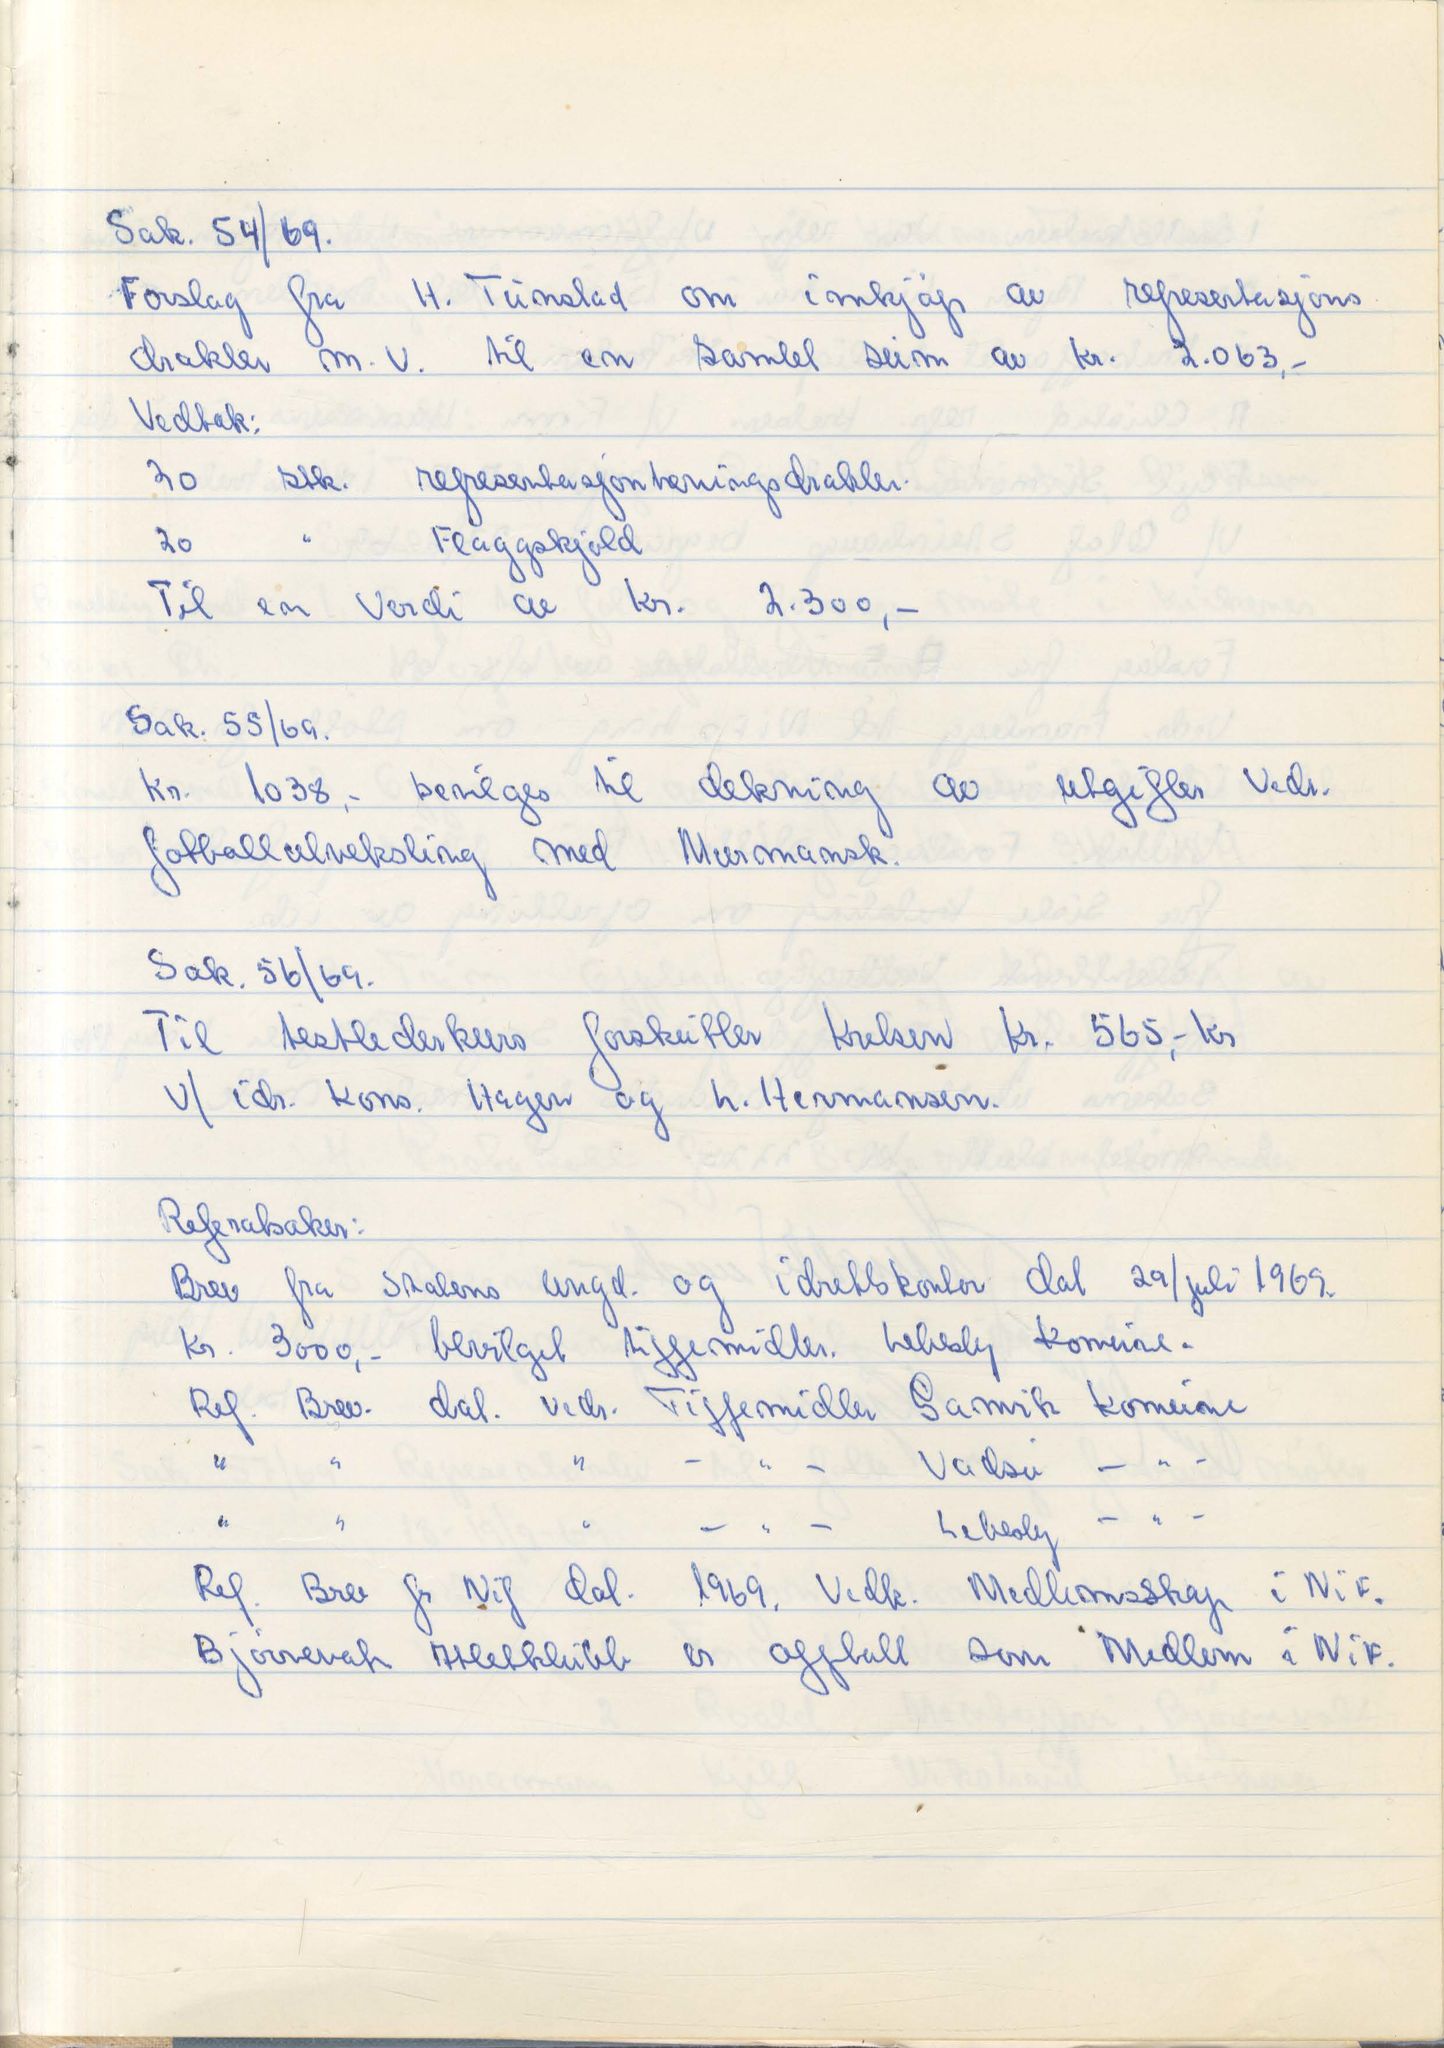 Sak. 54/69.
Forslag fra H. Tunstad om innkjøp av representasjons
drakter m.v. til en samlet sum av kr. 2.063,-
Vedtak:
20 stk. representasjontreningsdrakter.
20 " Flaggskjold
Til en verdi av kr. 2.300,-
Sak. 55/69.
Kr. 1038,- bevilges til dekning av utgifter vedr.
fotballutveksling med Murmansk.
Sak. 56/69.
Til testlederkurs forskutter kretsen kr. 565,- kr
v/ idr. kons. Hagen og L. Hermansen.
Referatsaker:
Brev fra statens ungd. og idrettskontor dat 29/juli 1969.
Kr. 3000,- bevilget tippemidler. Lebesby komune.
Ref. Brev. dat. vedr. Tippemidler Gamvik komune
" " " - " - Vadsø - " -
" " " - " - Lebesby - " -
Ref. Brev fr Nif dat. 1969. Vedk. Medlemsskap i NiF.
Bjørnevatn Atletklubb er opptatt som Medlem i NiF.